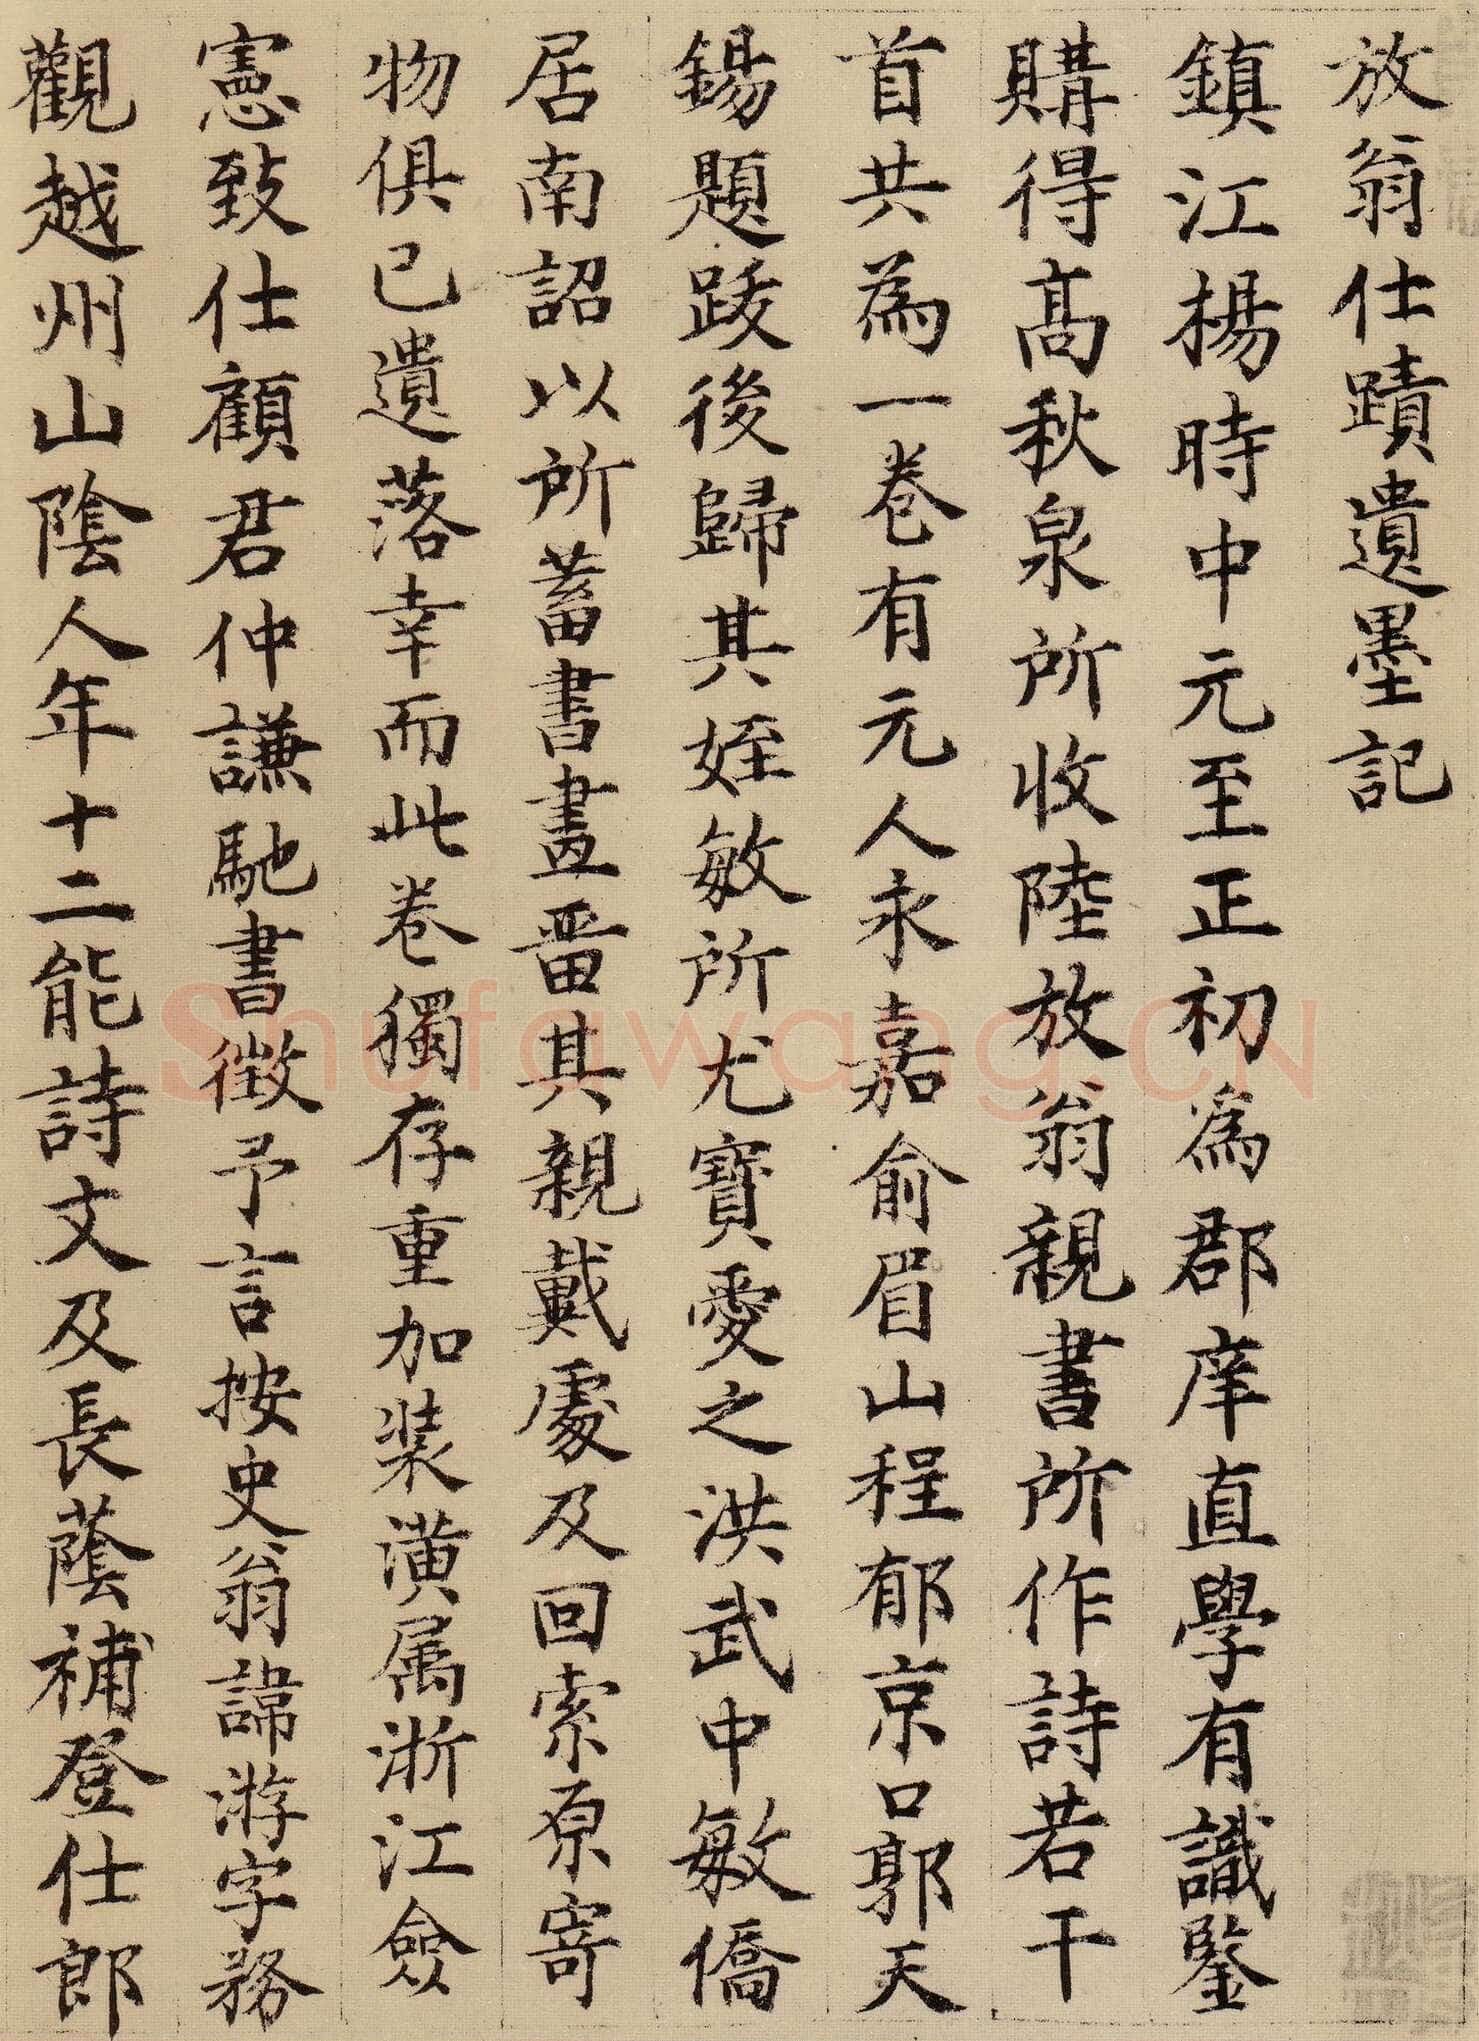 放翁仕蹟遺墨記
鎮江楊時中元至正初為郡庠直學有識鑒
購得高秋泉所收陸放翁親書所作詩若干
首共為一卷有元人永嘉俞眉山程郁京口郭天
錫題跋後歸其姪敏所尤寶愛之洪武中敏僑
居南詔以所蓄書畫畱其親戴處及回索原寄
物俱已遺落幸而此卷獨存重加裝潢属浙江僉
憲致仕顧君仲謙馳書徵予言按史翁諱游字務
觀越州山陰人年十二能詩文及長蔭補登仕郎
Shufawang.CN